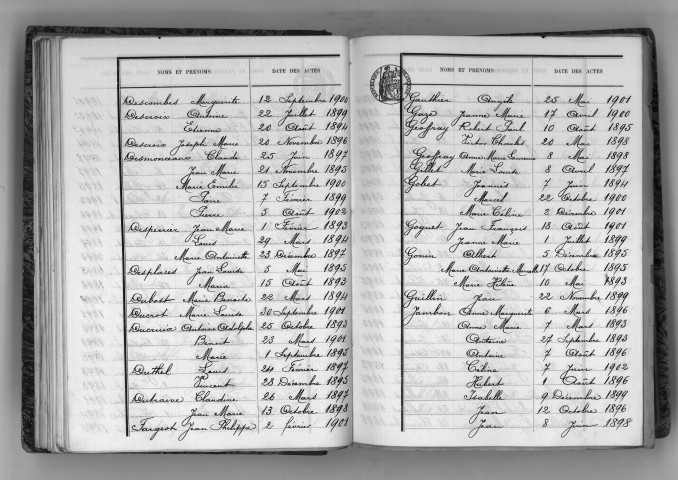 NOMS ET PRÉNOMS DATE DES ACTES
Descombes Marguerite 12 Septembre 1900
Descroix Antoine 22 Juillet 1899
Etienne 20 Août 1894
Descroix Joseph Marie 20 Novembre 1896
Desmonceaux Claude 25 Juin 1897
Jean Marie 21 Novembre 1895
Marie Emilie 15 Septembre 1900
7 Février 1899
Pierre 5 Août 1902
Desperrier Jean Marie 1 Février 1893
Louis 29 Mars 1894
Marie Antoinette 23 Décembre 1897
Desplaces Jean Louis 5 Mai 1895
Maria 15 Août 1893
Dubost Marie Benoite 22 Mars 1894
Ducrot Marie Louise 30 Septembre 1901
Ducruix Antoine Adolphe 25 Octobre 1893
Benoit 23 Mars 1901
Marie 1 Septembre 1895
Duthel Louis 24 Février 1897
Vincent 28 Décembre 1895
Dutraive Claudine 26 Mars 1897
Jean Marie 13 Octobre 1898
Fargeot Jean Philippe 2 février 1901
NOMS ET PRÉNOMS DATE DES ACTES
Gauthier 25 Mai 1901
Gaze Jeanne Marie 17 Avril 1900
Geoffray Robert Paul 10 Août 1895
Victor Charles 20 Mai 1898
Geoffray Anne Marie 8 Mai 1898
Gillet Marie Louise 8 Avril 1897
Gobet Joannès 7 Juin 1894
Marcel 22 Octobre 1900
Marie Céline 2 Décembre 1901
Goguet Jean François 18 Août 1901
Jeanne Marie 1 Juillet 1899
Gonin Albert 5 Décembre 1895
Marie Antoinette 17 Octobre 1895
Marie Hélène 10 Mai 1893
Guillin Jean 22 Novembre 1899
Jambon Anne Marguerite 6 Mars 1896
Anne Marie 7 Mars 1893
Antoine 27 Septembre 1893
Antoine 7 Août 1896
Céline 7 Juin 1902
Hubert 1 Août 1896
Isabelle 9 Décembre 1899
Jean 12 Octobre 1896
Jean 8 Juin 1898